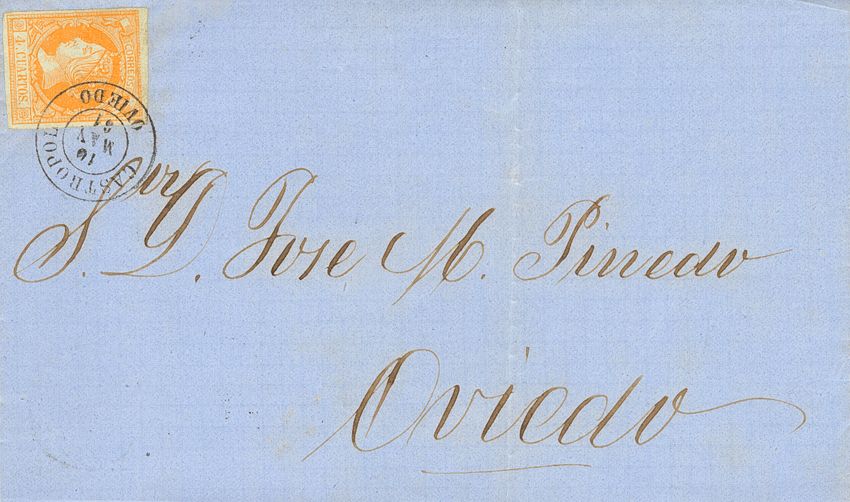 CORREOS
4 CUARTOS
CASTROPOL
10
MAY
61
OVIEDO
Sor D. Jose M. Pinedo
Oviedo